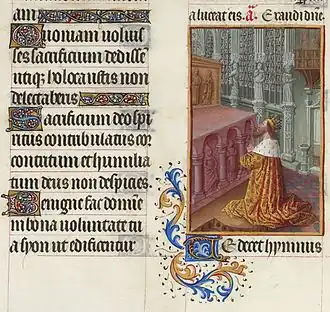 am
Quoniam voluis
ses sacrificium dedisse
utiq; holocaustis non
delectaberis
Sacrificium deo spi
ritus contribulatus cor
contritum et humilia
tum deus non despicies
Benigne fac domine
in bona voluntate tu
a syon ut edificentur
a luceat eis. a. Exaudi dne
Te decet hymnus